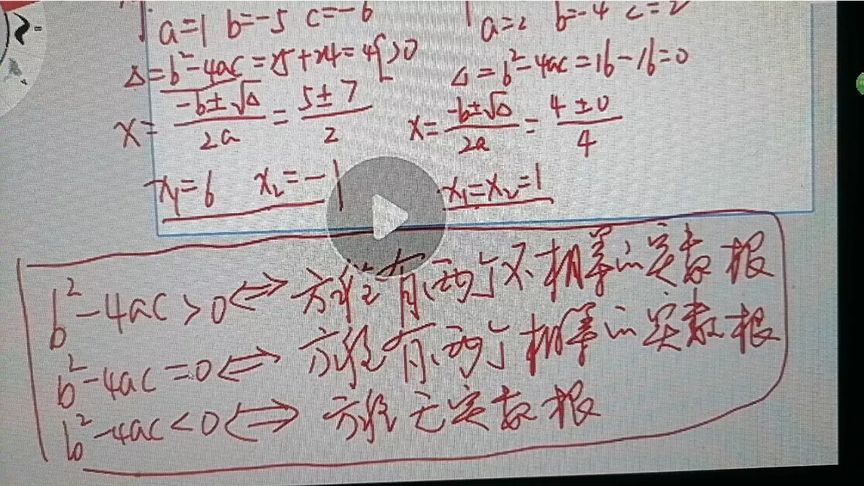 a=1 b=-5 c=-6
Δ=b²-4ac=25+24=49>0
x=(-b±√Δ)/2a=(5±7)/2
x₁=6 x₂=-1
a=2 b=-4 c=2
Δ=b²-4ac=16-16=0
x=(-b±√Δ)/2a=(4±0)/4
x₁=x₂=1
b²-4ac>0⇔方程有两个不相等的实数根
b²-4ac=0⇔方程有两个相等的实数根
b²-4ac<0⇔方程无实数根